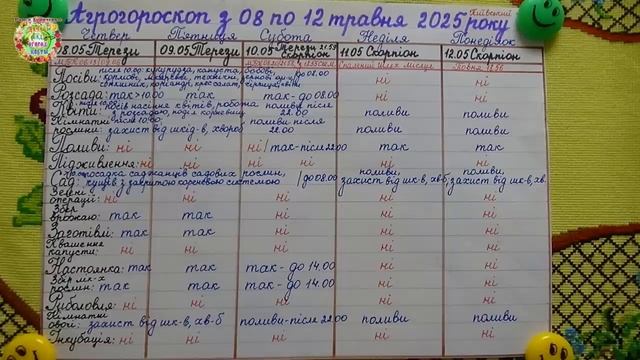 Агрогороскоп з 08 по 12 травня 2025 року
Київський
Четвер П'ятниця Субота Неділя Понеділок
08.05 Терези 09.05 Терези 10.05 Терези 21.59 Скорпіон 11.05 Скорпіон 12.05 Скорпіон
Посіви: після 10.00 кукурудза, капуста, бобові, до 08.00 ні ні
Розсада: так > 10.00 так так - до 08.00 ні ні
Квіти: посів насіння квітів, робота поливи після поливи поливи
з розсадою, поділ кореневищ 22.00
Кімнатні після 10.00 поливи після поливи поливи
рослини: захист від шкід-в, хвороб 22.00
Поливи: ні ні ні / так - після 22.00 так так
Підживлення: ні ні ні ні ні
пересадка саджанців садових рослин, поливи, поливи,
Сад: кущів з закритою кореневою системою / до 08.00 захист від шк-в, хв-б, захист від шк-в, хв.
Зелені
операції: ні ні ні ні ні
Збір
врожаю: так так ні ні ні
Заготівлі: так так ні ні ні
Квашення
капусти: ні ні ні ні ні
Настоянка: так так так - до 14.00 ні ні
Збір лік-х
рослин: так так так - до 14.00 ні ні
Риболовля: ні ні ні ні ні
Кімнатні
овочі: захист від шк-в, хв-б поливи - після 22.00 поливи поливи
Інкубація: ні ні ні ні ні